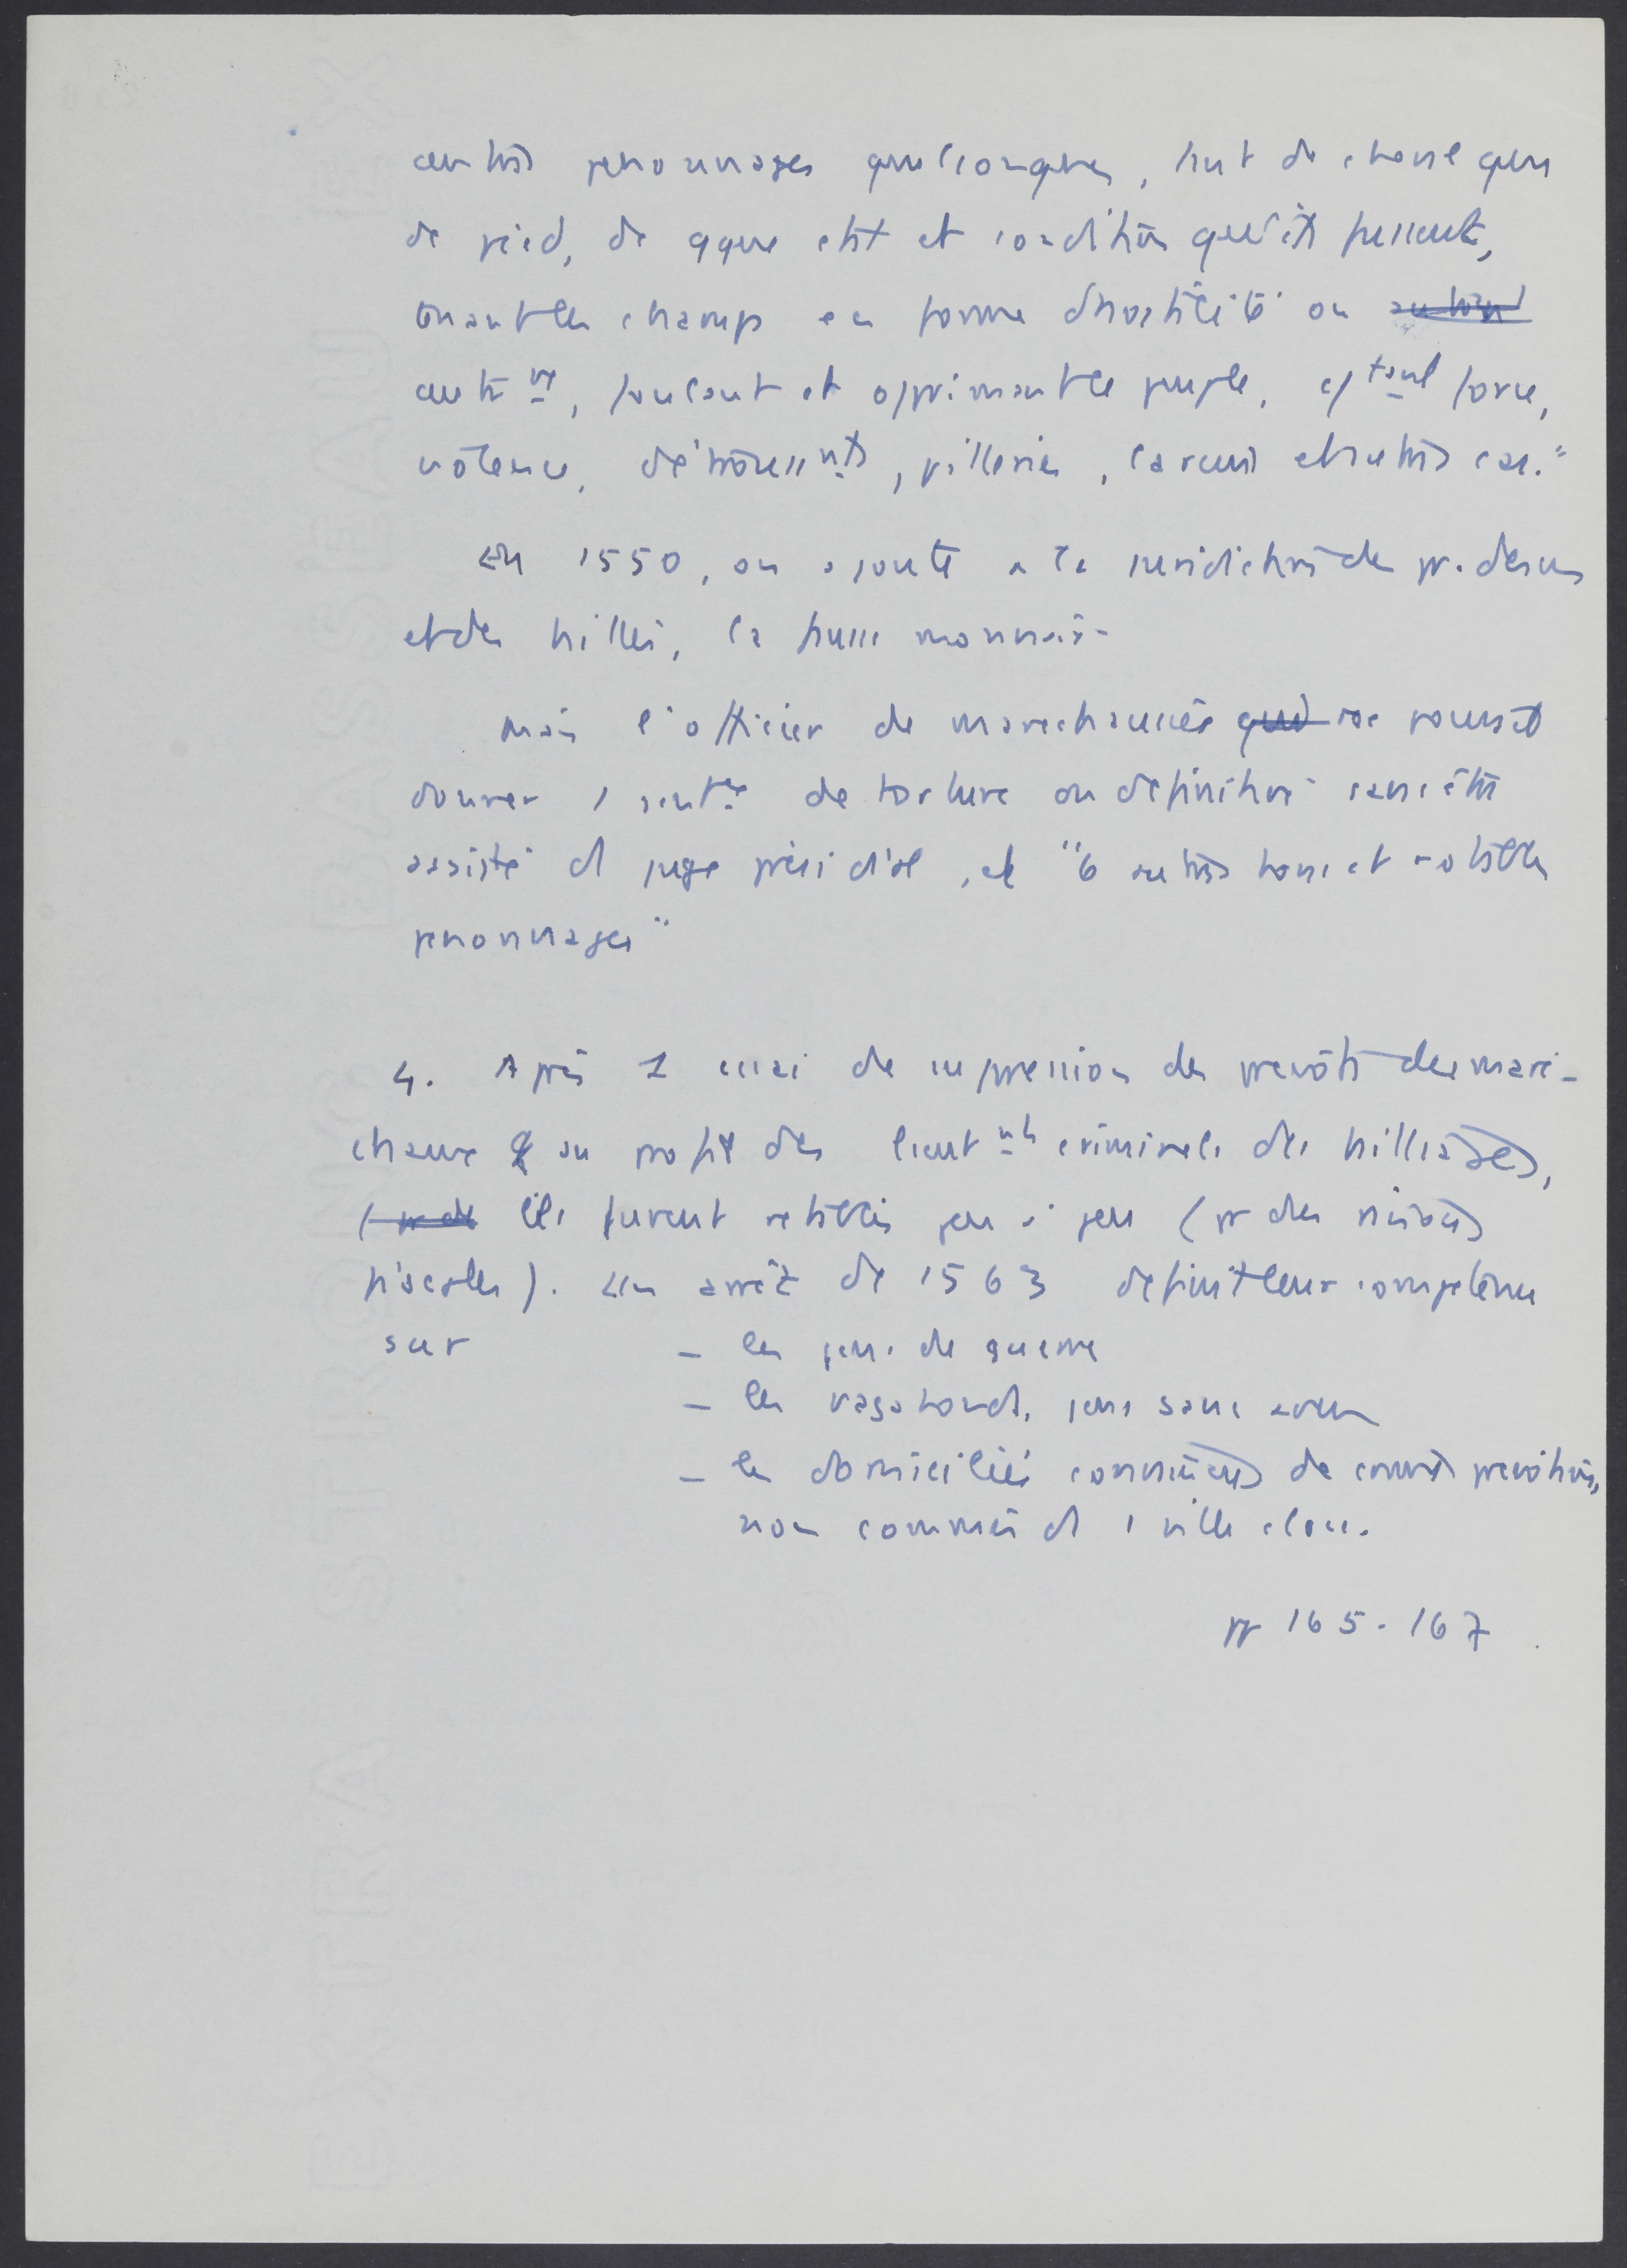 autres personnages quelconques, tint de cheval que
de pied, de qque etat et condition qu'ils fussent,
tenant les champs en forme d'hostilité ou autrent
autre nt, foulant et opprimant le peuple, force,
violence, détroussements, pilleries, larcins et autres cas."
En 1550, on ajoute à la juridiction des pr. deux
et des baillis, la fausse monnaie.
Mais l'officier de marechaussée qui ne pouvait
donner 1 sentce de torture ou definitive sans être
assisté d juge présidial, et "6 autres bons et notables
personnages"
4. Après 1 essai de suppression des prevôts des mare-
chaux au profit des lieutnts criminels des bailliages,
ils furent retablis peu à peu (pr des raisons
fiscales). Un arrêt de 1563 definit leur competence
sur - les gens de guerre
- les vagabonds, gens sans aveu
- les domiciliés de crimes prevôtaux,
non commis ds 1 ville close.
pp 165-167